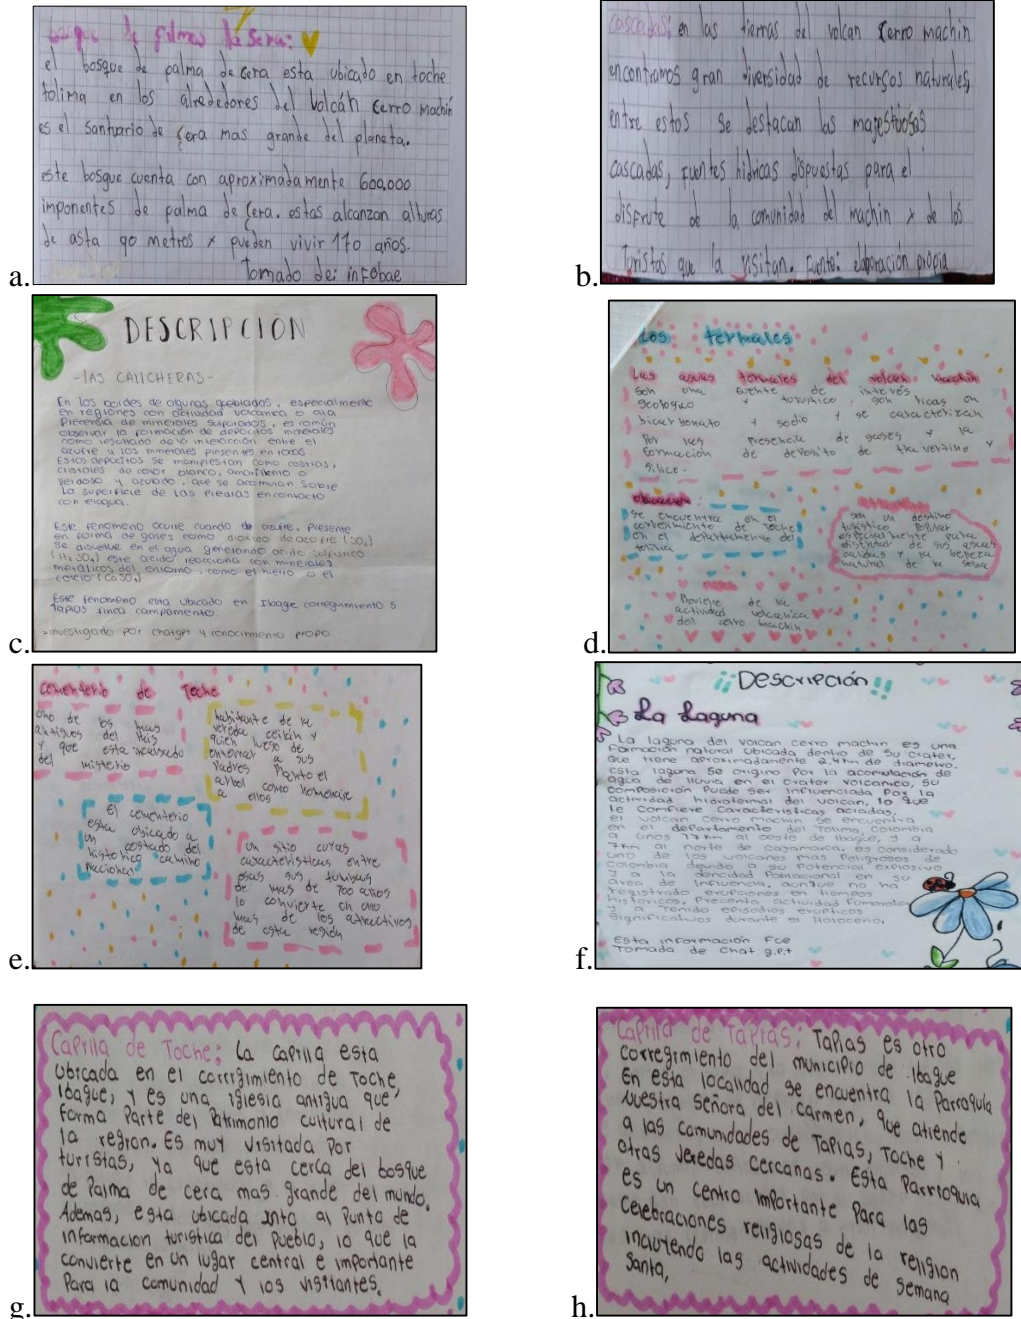 bosque de palmas de sera:
el bosque de palma de cera esta ubicado en toche
tolima en los alrededores del volcán cerro machin
es el santuario de cera mas grande del planeta.
este bosque cuenta con aproximadamente 600,000
imponentes de palma de cera. estas alcanzan alturas
de asta 90 metros y pueden vivir 170 años.
Tomado de: infobae
a.
cascadas: en las tierras del volcan cerro machin
encontramos gran diversidad de recursos naturales,
entre estos se destacan las majestuosas
cascadas, fuentes hidricas dispuestas para el
disfrute de la comunidad del machin y de los
turistas que la visitan. Fuente: elaboración propia
b.
DESCRIPCION
-LAS CALICHERAS-
En los bordes de algunas quebradas, especialmente
en regiones con actividad volcanica o alta
presencia de minerales sulfurados, es común
observar la formación de depósitos minerales
como resultado de la interaccion entre el
azufre y los minerales presentes en rocas.
Estos depositos se manifiestan como costras,
cristales de color blanco, amarillento o
verdoso y azulado, que se acumulan sobre
la superficie de las piedras en contacto
con el agua.
Este fenomeno ocurre cuando el azufre, presente
en forma de gases como dioxido de azufre (SO₂)
se disuelve en el agua generando acido sulfurico
(H₂SO₄) este acido reacciona con minerales
metálicos del entorno, como el hierro o el
calcio (CaSO₄)
Este fenomeno esta ubicado en Ibague corregimiento 5
tapias finca campamento.
-investigado por chatgpt y conocimiento propio.
c.
Los termales
Las aguas termales del volcan machin
son una fuente de interés
geologico y turistico, son ricas en
bicarbonato y sodio y se caracterizan
por la presencia de gases y la
formación de deposito de travertino y
silice.
ubicacion:
se encuentra en el
corregimiento de toche
en el departamento del
tolima
son un destino
turistico popular
especialmente para
disfrutar de sus aguas
calidas y la belleza
natural de la selva
Proviene de la
actividad volcanica
del cerro machin
d.
Cementerio de Toche
Uno de los mas
antiguos del pais
y que esta
del misterio
habitante de la
vereda ceilán y
quien luego de
enterrar a sus
padres planto el
arbol como homenaje
a ellos
El cementerio
esta ubicado a
un costado del
historico camino
nacional
Un sitio cuyas
caracteristicas entre
esas sus tumbas
de mas de 700 años
lo convierte en uno
mas de los atractivos
de esta region
e.
Descripción
La Laguna
La laguna del volcan cerro machin es una
Formación natural ubicada dentro de su crater,
que tiene aproximadamente 2.4 km de diametro.
esta laguna se origino por la acomulación de
agua de lluvia en el crater volcanico, su
composición puede ser influenciada por la
actividad hidrotermal del volcan, lo que
le confiere caracteristicas acladas.
el volcan cerro machin se encuentra
en el departamento del Tolima, Colombia
a unos 17 km al oeste de Ibagué, y a
7 km al norte de cajamarca. es considerado
uno de los volcanes mas peligrosos de
colombia debido a su potencial explosivo
y a la dencidad poblacional en su
area de influencia, aunque no ha
registrado erupciones en tiempos
historicos. Precenta actividad Fumarolica
y a tenido episodios eruptivos
significativos durante el Holoceno.
Esta información Fue
Tomada de Chat g.p.t
f.
Capilla de Toche: La capilla esta
ubicada en el corregimiento de Toche,
Ibague, y es una iglesia antigua que
forma parte del patrimonio cultural de
la region. Es muy visitada por
turistas, ya que esta cerca del bosque
de Palma de cera mas grande del mundo.
Ademas, esta ubicada al punto de
informacion turistica del pueblo, lo que la
convierte en un lugar central e importante
para la comunidad y los visitantes.
g.
Capilla de Tapias: Tapias es otro
corregimiento del municipio de Ibague
En esta localidad se encuentra la Parroquia
Nuestra Señora del Carmen, que atiende
a las comunidades de Tapias, Toche y
otras veredas cercanas. Esta Parroquia
es un centro importante para las
celebraciones religiosas de la religion
incluyendo las actividades de semana
Santa,
h.